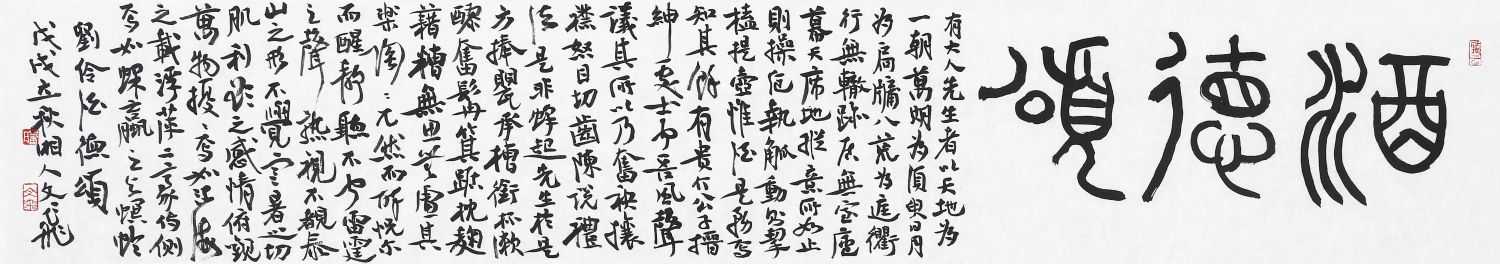 酒德頌
有大人先生者以天地為
一朝萬期為須臾日月
為扃牖八荒為庭衢
行無轍跡居無室廬
幕天席地縱意所如止
則操卮執觚動則挈
榼提壺惟酒是務焉
知其餘有貴介公子搢
紳處士聞吾風聲
議其所以乃奮袂攘
襟怒目切齒陳說禮
法是非鋒起先生於是
方捧甖承槽銜杯漱
醪奮髯箕踞枕麴
藉糟無思無慮其
樂陶〻兀然而醉恍尔
而醒靜聽不聞雷霆
之聲熟視不覩泰
山之形不覺寒暑之切
肌利欲之感情俯觀
萬物擾〻焉如江海
之載浮萍二豪侍側
焉如蜾蠃之与螟蛉
劉伶酒德頌
戊戌立秋湘人文飛